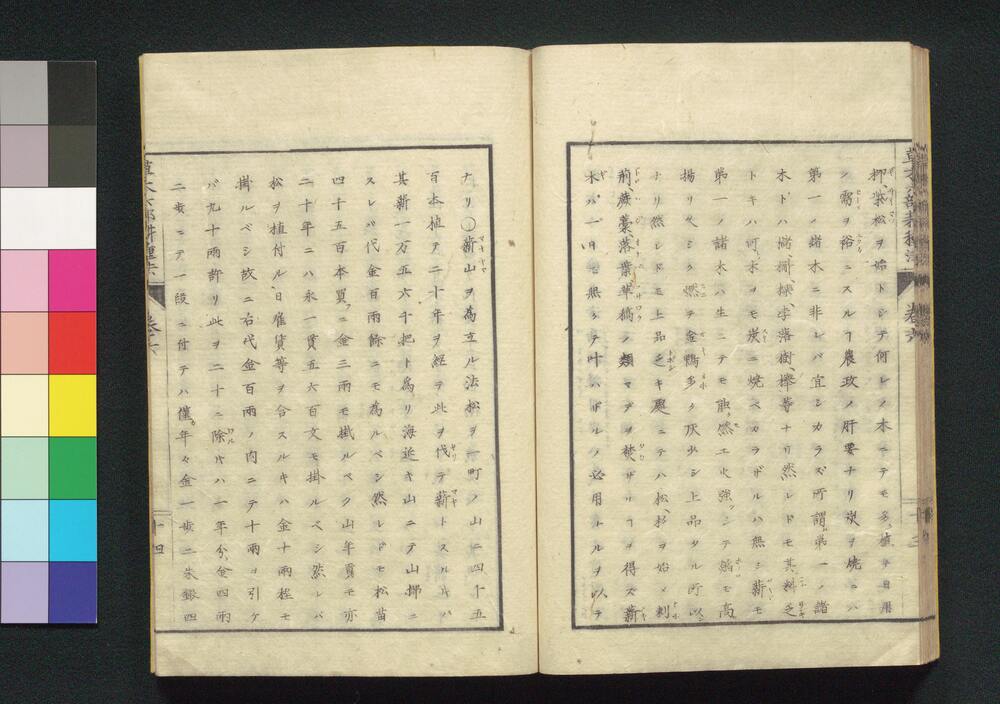 柳、葉松ヲ始トシテ何レノ木ニテモ多ク植テ日用
ノ需ヲ裕ニスルヿ農政ノ肝要ナリ炭ヲ焼ニハ
第一ノ諸木ニ非レバ宜シカラズ所謂第一ノ諸
木トハ櫧、櫟、李落樹、欅等ナリ然レドモ其料乏
トキハ何ノ木ヲモ炭ニ焼ベカラザルハ無シ薪モ
第一ノ諸木ハ生ニテモ能ク燃エ火強シテ熖モ高
揚リ久シク燃テ金鴨多ク灰少シ上品タル所以
ナリ然レドモ上品乏キ処ニテハ松、杉ヲ始メ刺
荊、蕨藁、落葉、草稿ノ類マデヲ焚ザルヿヲ得ズ薪
木ハ一日モ無クテ叶ハザルノ必用トルヲ以テ
ナリ〇薪山ヲ為立ル法松ヲ一町ノ山ニ四千五
百本植テ二十年ヲ経テ此ヲ伐テ薪トスルキハ
其薪一万五六千把ト為リ海近キ山ニテ山挪ニ
スレバ代金百両餘ニモ為ルベシ然レドモ松苗
四千五百本買ニ金三両モ掛ルベク山年貢モ亦
二十年ニハ永一貫五六百文モ掛ルベシ然レバ
松ヲ植付ル日雇賃等ヲ合スルキハ金十両程モ
掛ルベシ故ニ右代金百両ノ内ニテ十両ヲ引ケ
バ九十両許リ此ヲ二十ニ除キハ一年分金四両
二歩ニテ一段ニ付テハ僅ニ年々金一歩ニ朱銀四
十四